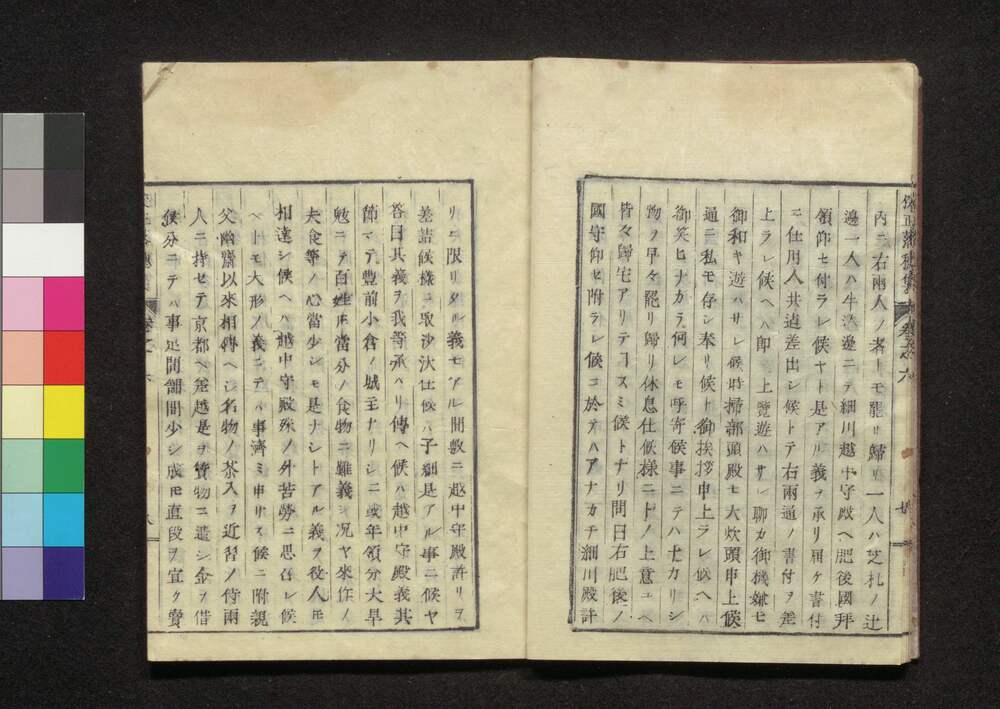 內ニ右兩人ノ者トモ罷リ歸リ一人ハ芝札ノ辻
邊一人ハ牛込邊ニテ細川越中守殿ヘ肥後國拜
領仰セ付ラレ候ヤト是アル義ヲ承リ届ケ書付
ニ仕用人共迠差出シ候トテ右兩通ノ書付ヲ差
上ラレ候ヘハ卽 上覽遊ハサレ聊カ御機嫌モ
御和キ遊ハサレ候時掃部頭殿モ大炊頭申上候
通ニ私モ存シ奉リ候ト御挨拶申上ラレ候ヘハ
御笑ヒナカラ何レモ呼寄候事ニテハ十カリシ
物ヲ早々罷リ歸リ休息仕候樣ニトノ上意ユヘ
皆々歸宅アリテコスミ候トナリ問曰右肥後ノ
國守仰セ附ラレ候コ於テハアナカチ細川殿許
リニ限リタル義モアル間敷ニ越中守殿許リヲ
差詰候樣ニ取沙汰仕候ハ子細是アル事ニ候ヤ
答曰其義ヲ我等承ハリ傳ヘ候ハ越中守殿義其
節マテ豐前小倉ノ城主ナリシニ或年領分大旱
魃ニテ百姓𪜈當分ノ食物ニ難義シ况ヤ來作ノ
夫食等ノ心當少シモ是ナシトアル義ヲ役人𪜈
相達シ候ヘハ越中守殿殊ノ外苦勞ニ思召レ候
ヘトモ大形ノ義ニテハ事濟ミ申サス候ニ附親
父幽齋以來相傳ヘシ名物ノ茶入ヲ近習ノ侍兩
人ニ持セテ京都ヘ差越是ヲ質物ニ遣シ金ヲ借
候分ニテハ事足間舖間少シ成𪜈直段ヲ宜ク賣